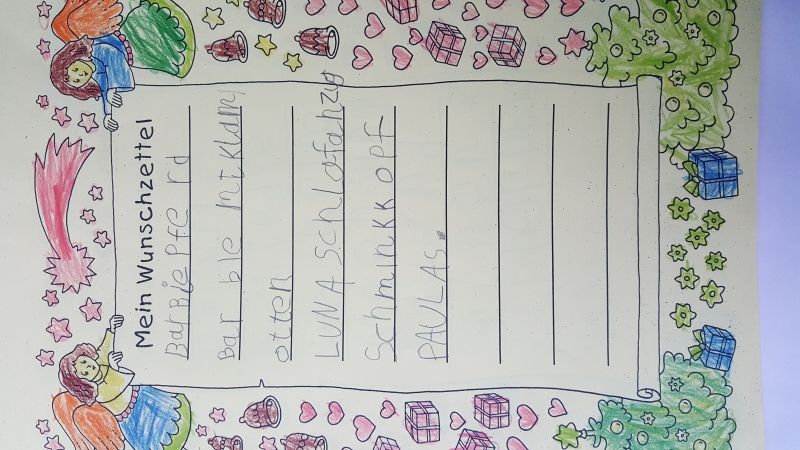 Mein Wunschzettel
BarBiePferd
Bar bie mtKlam
otten
LUNA Schlofahzug
Schminkkopf
PAULAS.